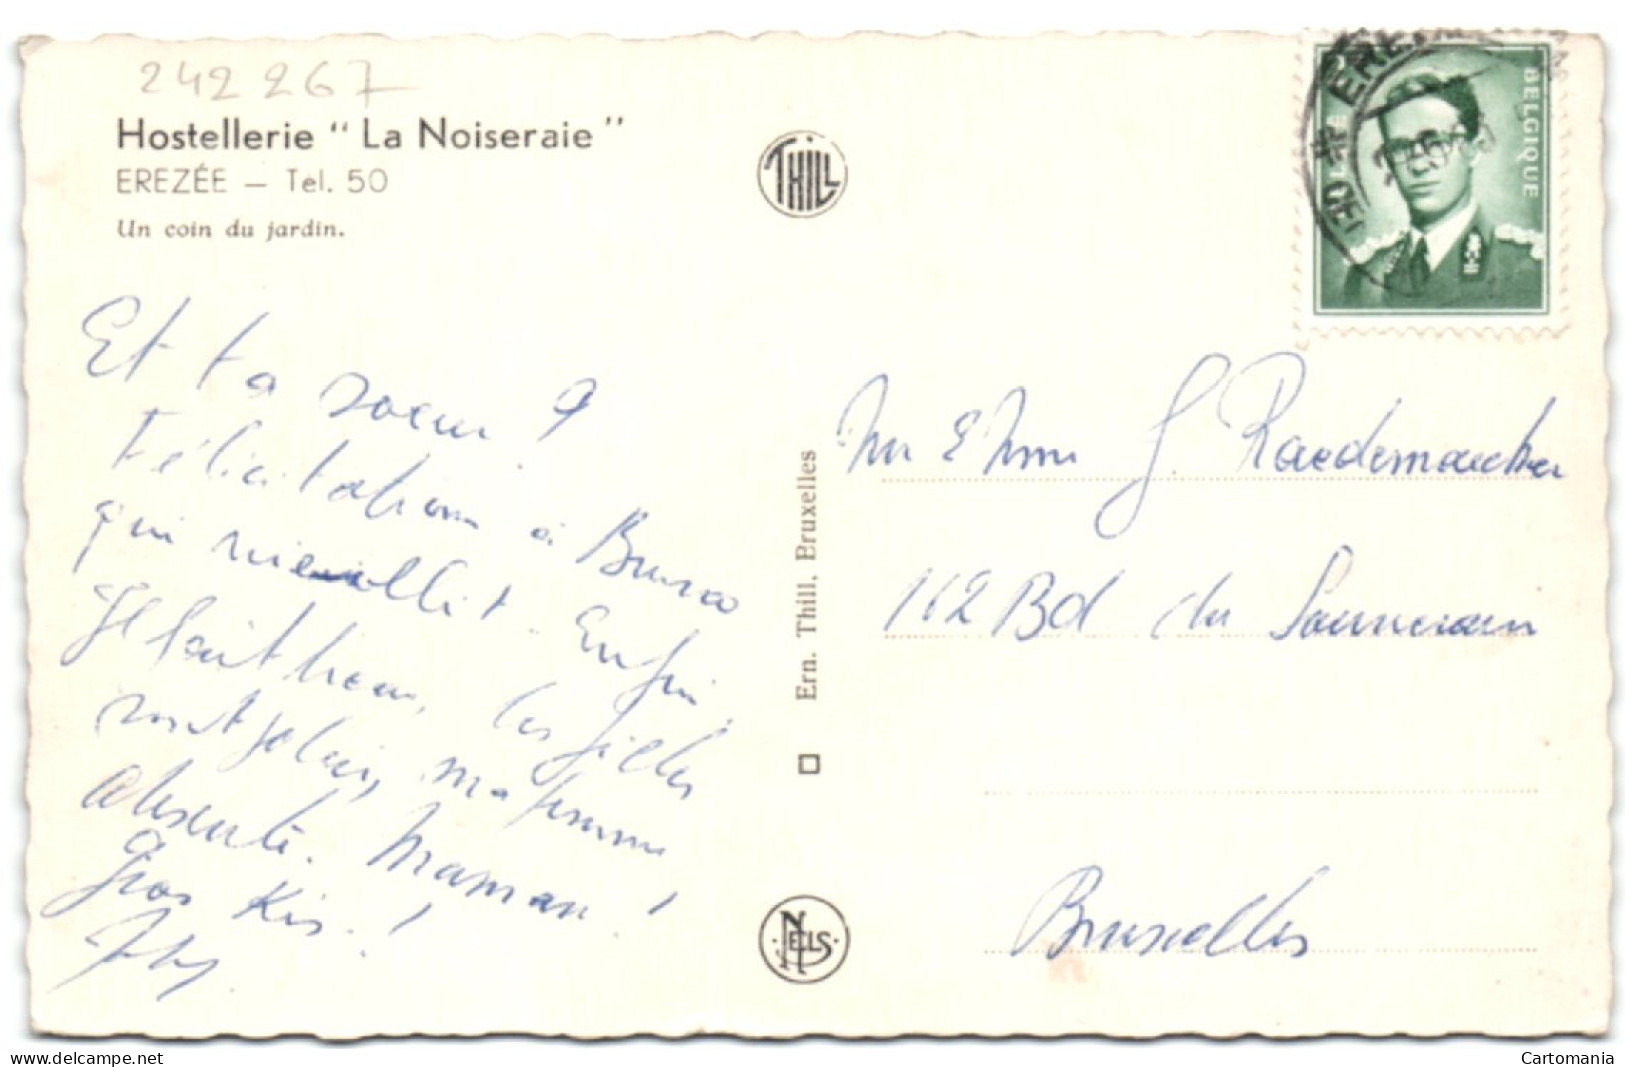 242267
Hostellerie “ La Noiseraie ”
EREZÉE — Tel. 50
Un coin du jardin.
THILL
BELGIQUE
EREZ
Et ta sœur ?
Félicitations à Bruno
qui vieillit. Enfin,
Il fait beau, les filles
sont jolies, ma femme
absente. Maman !
Gros Kis !
Mr & Mme J. Raedemaecker
162 Bd du Souverain
Bruxelles
Ern. Thill, Bruxelles
NELS
www.delcampe.net
Cartomania